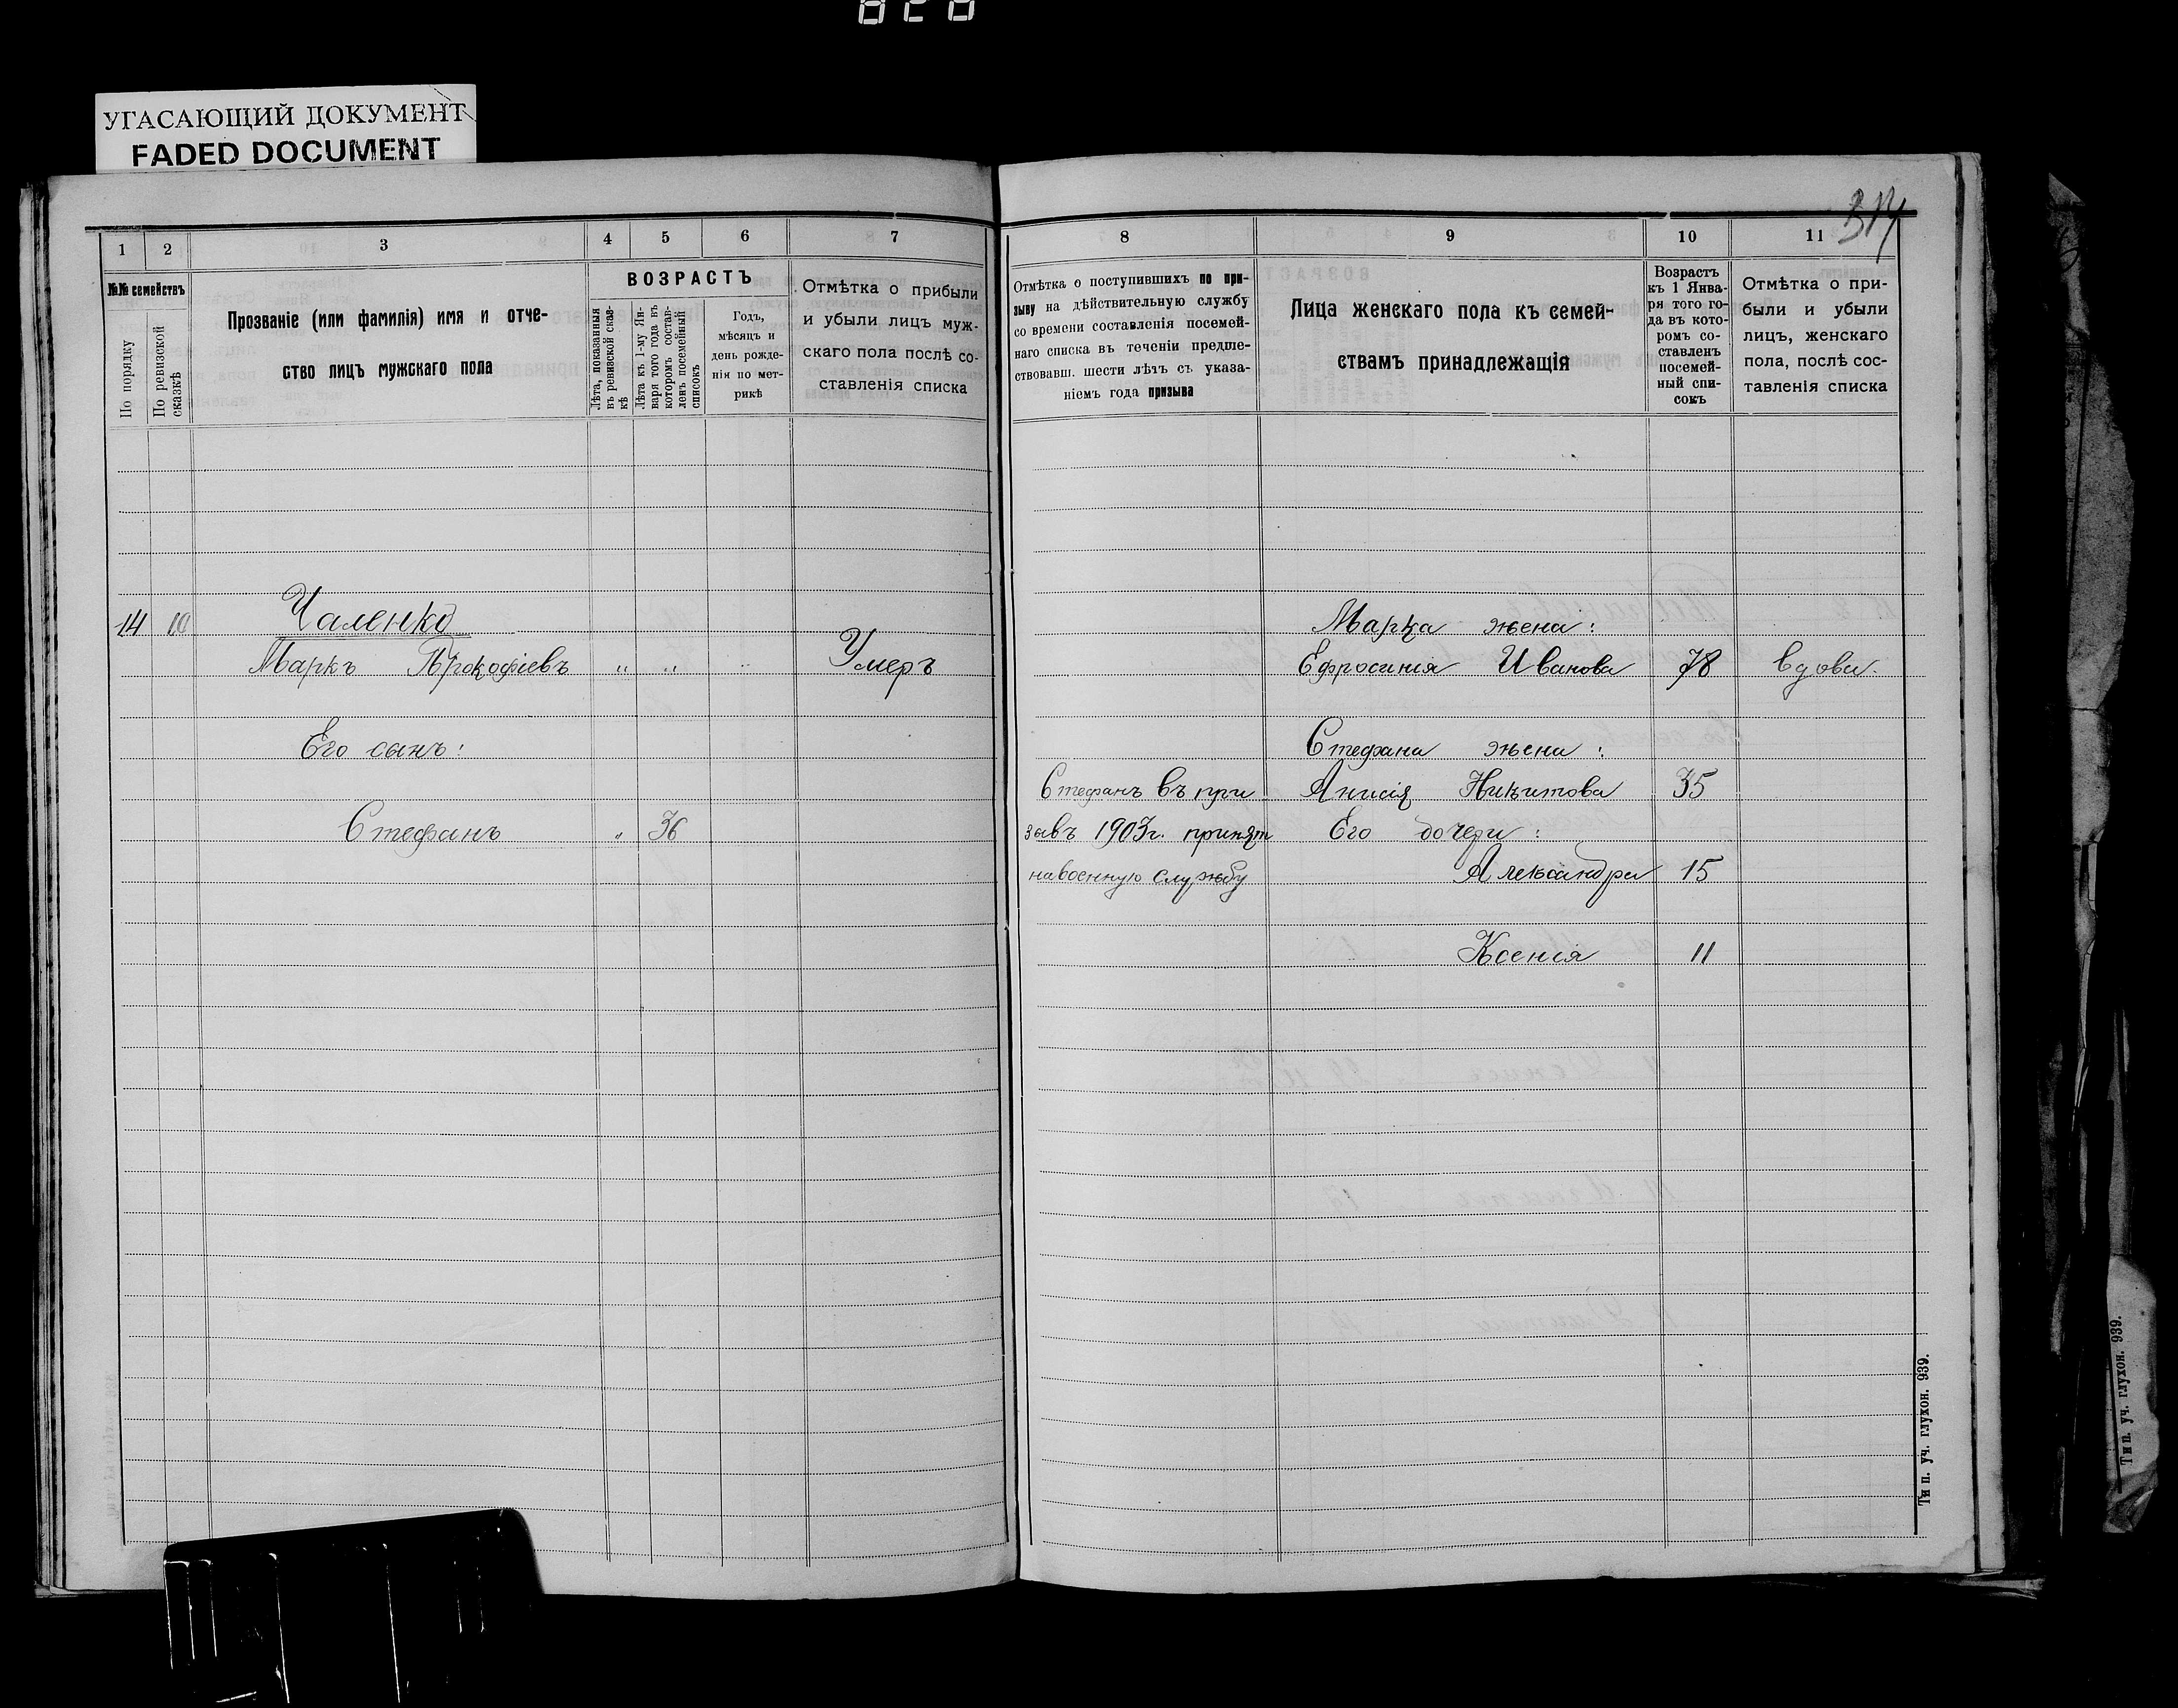 УГАСАЮЩИЙ ДОКУМЕНТ
FADED DOCUMENT
1 2 3 4 5 6 7
№№ семействъ
По порядку
По ревизской сказкѣ
Прозваніе (или фамилія) имя и отче-
ство лицъ мужскаго пола
ВОЗРАСТЪ
Лѣта, показанныя
въ ревизской сказ-
кѣ
Лѣта къ 1-му Ян-
варя того года къ
которомъ состав-
ленъ посемейный
списокъ
Годъ,
мѣсяцъ и
день рожде-
нія по мет-
рикѣ
Отмѣтка о прибыли
и убыли лицъ муж-
скаго пола послѣ со-
ставленія списка
14 10 Чаленко
Маркъ Прокофіевъ " " " Умеръ
Его сынъ:
Стефанъ " 36
8 9 10 11
Отмѣтка о поступившихъ по при-
зыву на дѣйствительную службу
со времени составленія посемей-
наго списка въ теченіи предше-
ствовавш. шести лѣтъ съ указа-
ніемъ года призыва
Лица женскаго пола къ семей-
ствамъ принадлежащія
Возрастъ
къ 1 Янва-
ря того го-
да въ кото-
ромъ со-
ставленъ
посемей-
ный спи-
сокъ
Отмѣтка о при-
были и убыли
лицъ, женскаго
пола, послѣ сос-
тавленія списка
Марка жена:
Ефросинія Иванова 78 вдова.
Стефана жена:
Стефанъ въ при Анисія Никитова 35
зывъ 1903г. принят Его дочери:
на военную службу Александра 15
Ксенія 11
Тип. уч. глухон. 939.
Тип. уч. глухон. 939.